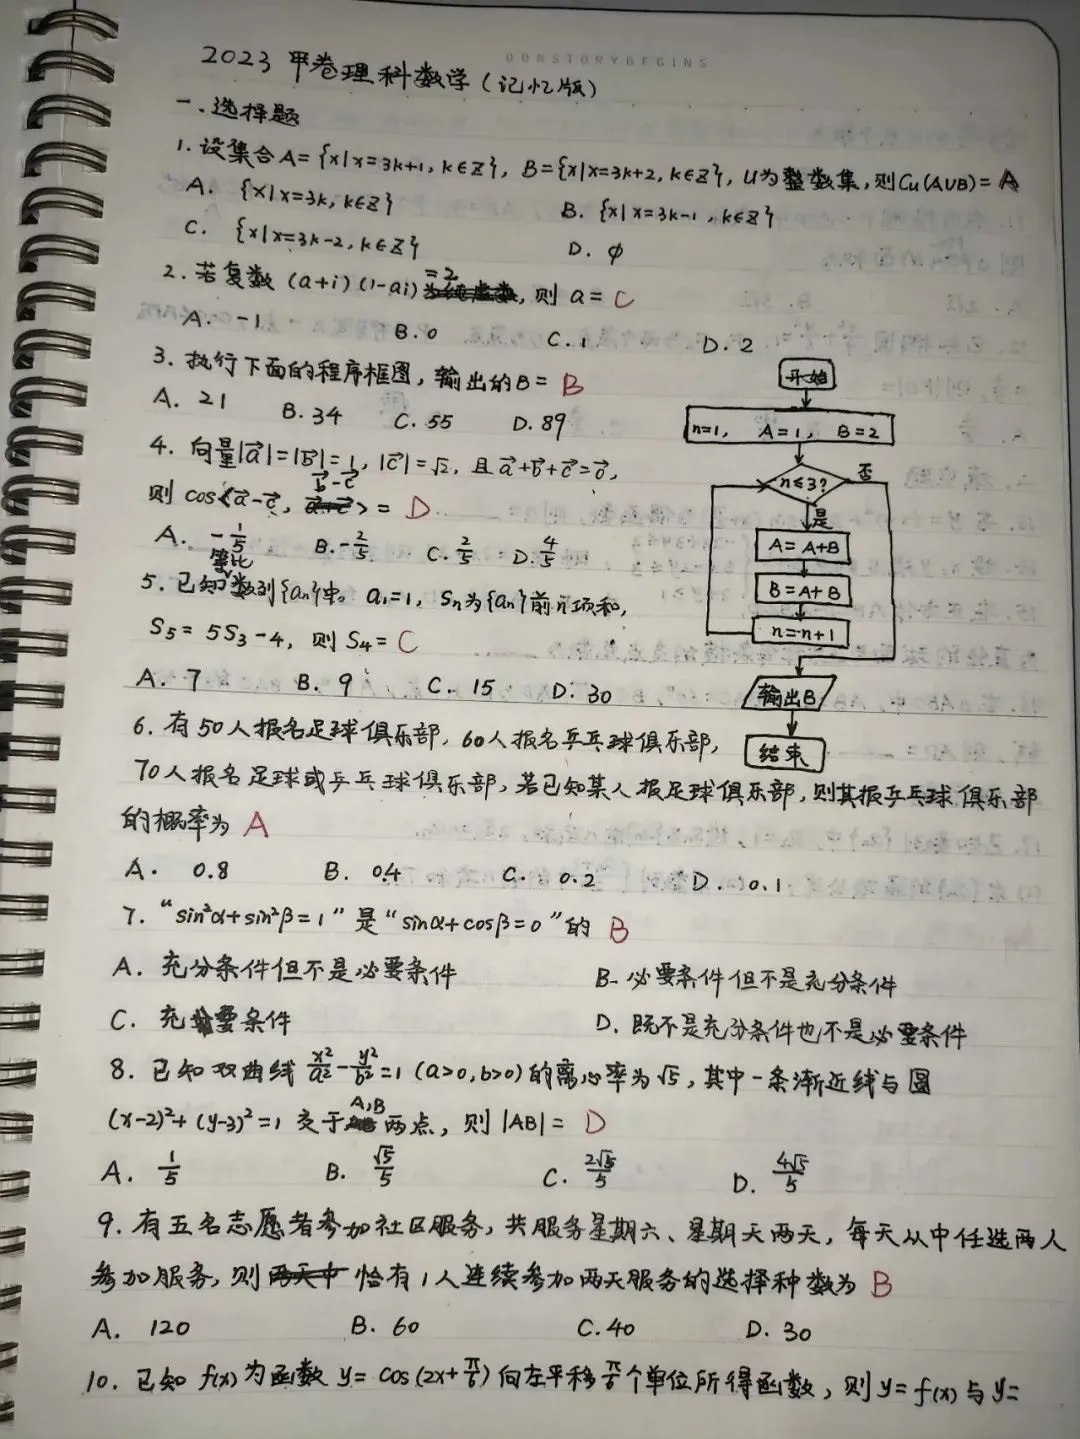 OURSTORYBEGINS
2023 甲卷理科数学（记忆版）
一、选择题
1. 设集合A={x|x=3k+1, k∈Z}, B={x|x=3k+2, k∈Z}, U为整数集, 则Cu(A∪B)= A
A. {x|x=3k, k∈Z}
B. {x|x=3k-1, k∈Z}
C. {x|x=3k-2, k∈Z}
D. φ
2. 若复数 (a+i)(1-ai)=2, 则 a= C
A. -1 B. 0 C. 1 D. 2
3. 执行下面的程序框图, 输出的B= B
A. 21 B. 34 C. 55 D. 89
4. 向量|a⃗|=|b⃗|=1, |c⃗|=√2, 且 a⃗+b⃗+c⃗=0⃗,
则 cos<a⃗-c⃗, b⃗-c⃗>= D
A. -1/5 B. -2/5 C. 2/5 D. 4/5
5. 已知等比数列{an}中。a1=1, Sn为{an}前n项和,
S5=5S3-4, 则 S4= C
A. 7 B. 9 C. 15 D. 30
开始
n=1, A=1, B=2
n≤3?
否
是
A=A+B
B=A+B
n=n+1
输出B
结束
6. 有50人报名足球俱乐部, 60人报名乒乓球俱乐部,
70人报名足球或乒乓球俱乐部, 若已知某人报足球俱乐部, 则其报乒乓球俱乐部
的概率为 A
A. 0.8 B. 0.4 C. 0.2 D. 0.1
7. “sin²α+sin²β=1”是“sinα+cosβ=0”的 B
A. 充分条件但不是必要条件 B. 必要条件但不是充分条件
C. 充要条件 D. 既不是充分条件也不是必要条件
8. 已知双曲线 x²/a²-y²/b²=1 (a>0, b>0)的离心率为√5, 其中一条渐近线与圆
(x-2)²+(y-3)²=1 交于A,B两点, 则|AB|= D
A. 1/5 B. √5/5 C. 2√5/5 D. 4√5/5
9. 有五名志愿者参加社区服务, 共服务星期六、星期天两天, 每天从中任选两人
参加服务, 则恰有1人连续参加两天服务的选择种数为 B
A. 120 B. 60 C. 40 D. 30
10. 已知 f(x)为函数 y=cos(2x+π/6)向左平移π/6个单位所得函数, 则 y=f(x)与y=